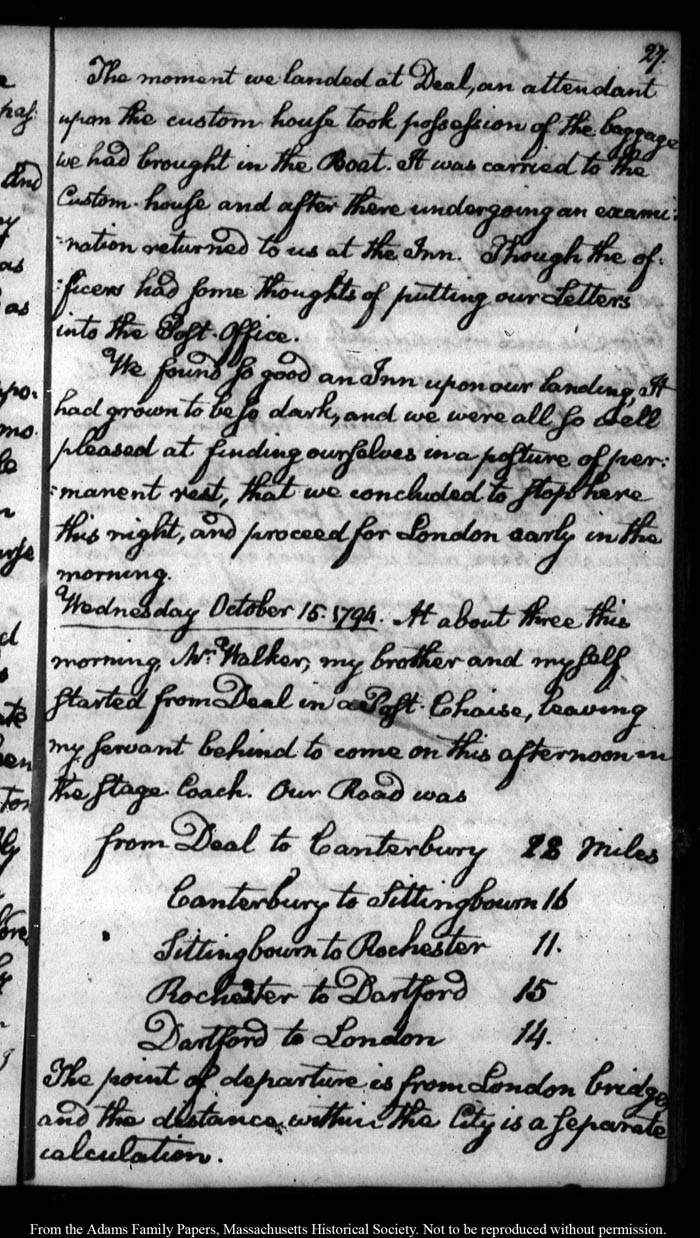 27.
The moment we landed at Deal, an attendant
upon the custom house took possession of the baggage
we had brought in the Boat. It was carried to the
Custom-house and after there undergoing an exami:
:nation returned to us at the Inn. Though the of:
:ficers had some thoughts of putting our Letters
into the Post-Office.
We found so good an Inn upon our landing, It
had grown to be so dark, and we were all so well
pleased at finding ourselves in a posture of per:
:manent rest, that we concluded to stop here
this night, and proceed for London early in the
morning.
Wednesday October 15. 1794. At about three this
morning, Mr. Walker, my brother and myself
started from Deal in a Post-Chaise, leaving
my servant behind to come on this afternoon in
the stage Coach. Our Road was
from Deal to Canterbury miles
Canterbury to Sittingbourn 16
Sittingbourn to Rochester 11.
Rochester to Dartford 15
Dartford to London 14.
The point of departure is from London bridge,
and the distance within the City is a separate
calculation.
From the Adams Family Papers, Massachusetts Historical Society. Not to be reproduced without permission.